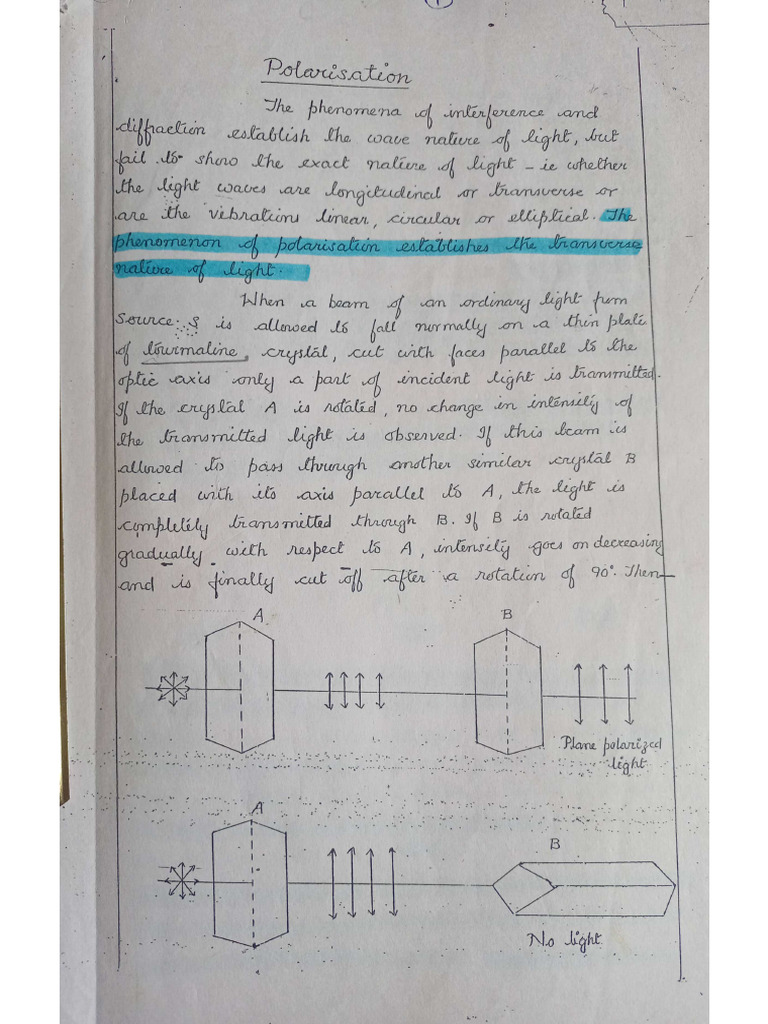 1
Polarisation
The phenomena of interference and
diffraction establish the wave nature of light, but
fail to show the exact nature of light - ie whether
the light waves are longitudinal or transverse or
are the vibrations linear, circular or elliptical. The
phenomenon of polarisation establishes the transverse
nature of light.
When a beam of an ordinary light from
source S is allowed to fall normally on a thin plate
of tourmaline crystal, cut with faces parallel to the
optic axis only a part of incident light is transmitted.
If the crystal A is rotated, no change in intensity of
the transmitted light is observed. If this beam is
allowed to pass through another similar crystal B
placed with its axis parallel to A, the light is
completely transmitted through B. If B is rotated
gradually with respect to A, intensity goes on decreasing
and is finally cut off after a rotation of 90°. Then
A
B
Plane polarized
light
A
B
No light